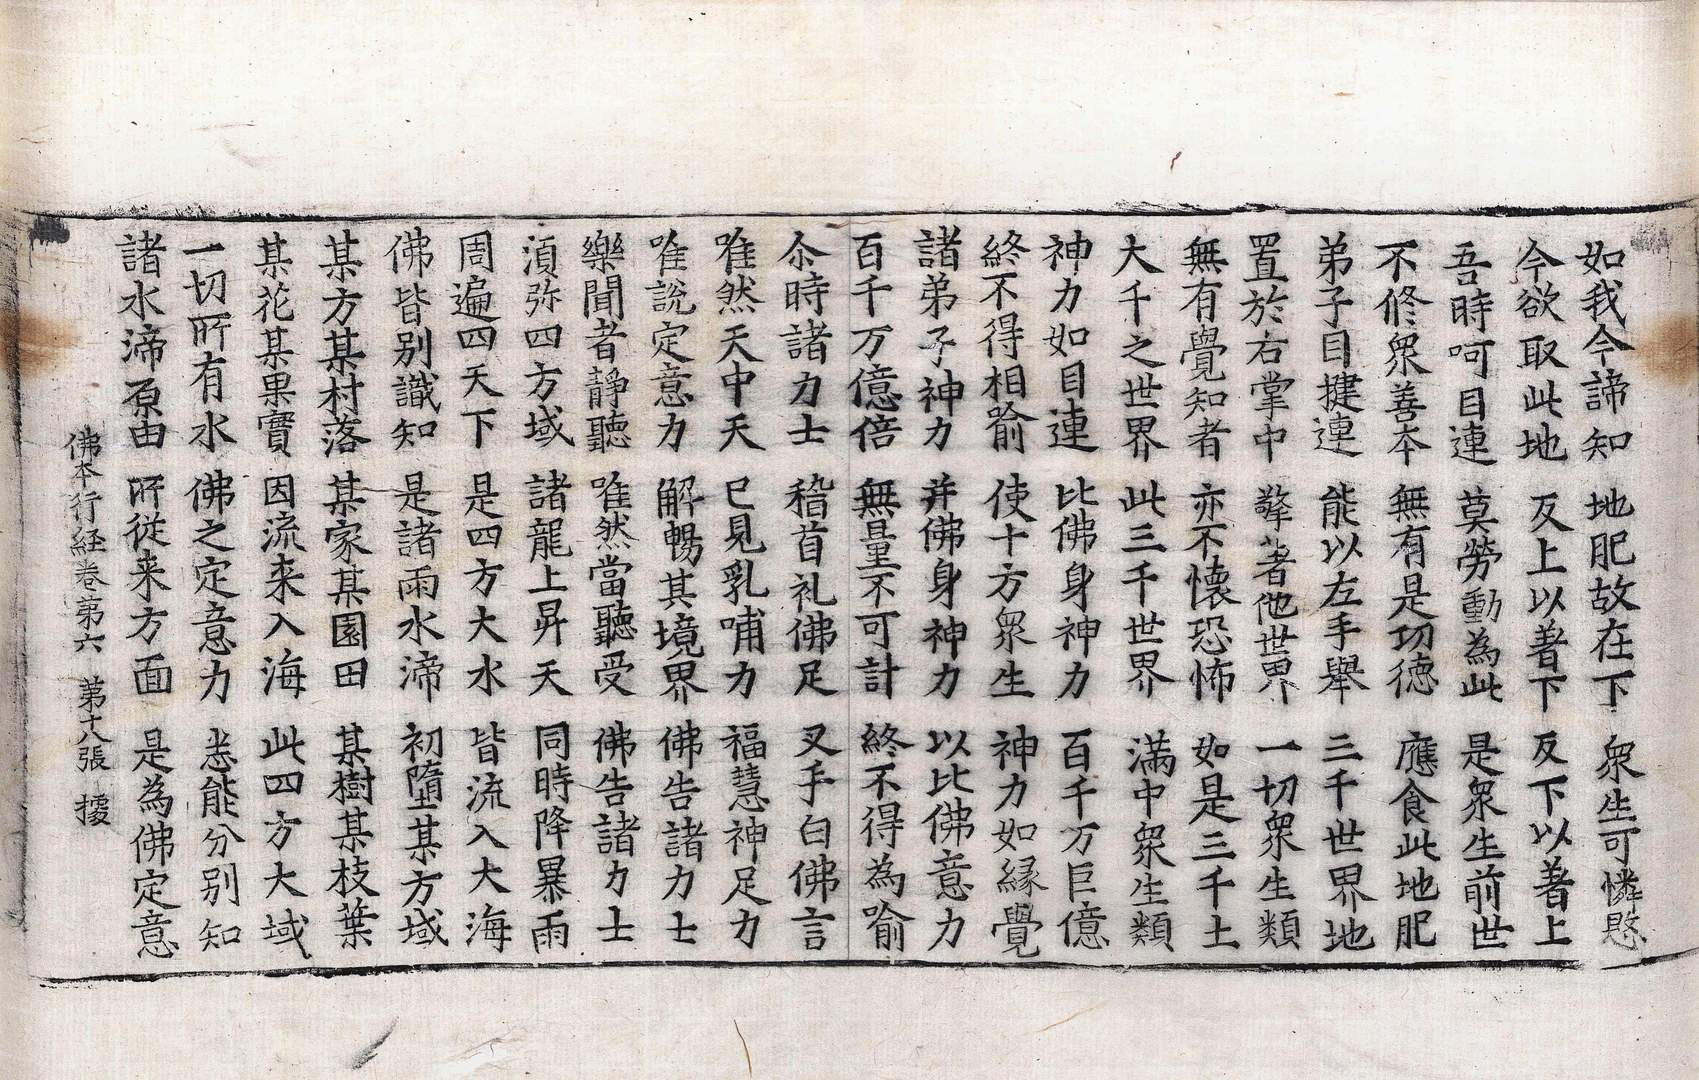 如我今諦知　地肥故在下　衆生可憐愍
今欲取此地　反上以著下　反下以著上
吾時呵目連　莫勞動為此　是衆生前世
不修衆善本　無有是功德　應食此地肥
弟子目揵連　能以左手舉　三千世界地
置於右掌中　擎著他世界　一切衆生類
無有覺知者　亦不懷恐怖　如是三千土
大千之世界　此三千世界　滿中衆生類
神力如目連　比佛身神力　百千万巨億
終不得相喻　使十方衆生　神力如縁覺
諸弟子神力　并佛身神力　以比佛意力
百千万億倍　無量不可計　終不得為喻
尒時諸力士　稽首礼佛足　叉手白佛言
唯然天中天　已見乳哺力　福慧神足力
唯說定意力　解暢其境界　佛告諸力士
樂聞者靜聽　唯然當聽受　佛告諸力士
湏弥四方域　諸龍上昇天　同時降暴雨
周遍四天下　是四方大水　皆流入大海
佛皆別識知　是諸雨水渧　初墮某方域
某方某村落　某家某園田　某樹某枝葉
某花某果實　因流来入海　此四方大域
一切所有水　佛之定意力　悉能分別知
諸水渧原由　所從来方面　是為佛定意
佛本行経卷第六　第十八張　據